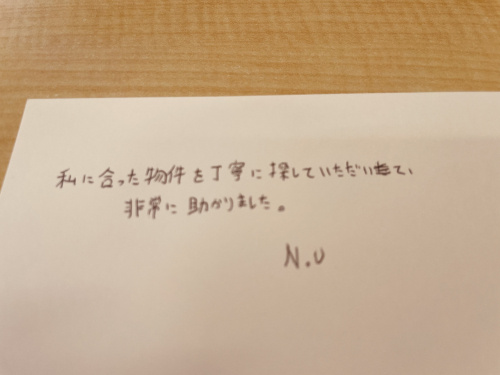 私に合った物件を丁寧に探していただいて、
非常に助かりました。
N.U